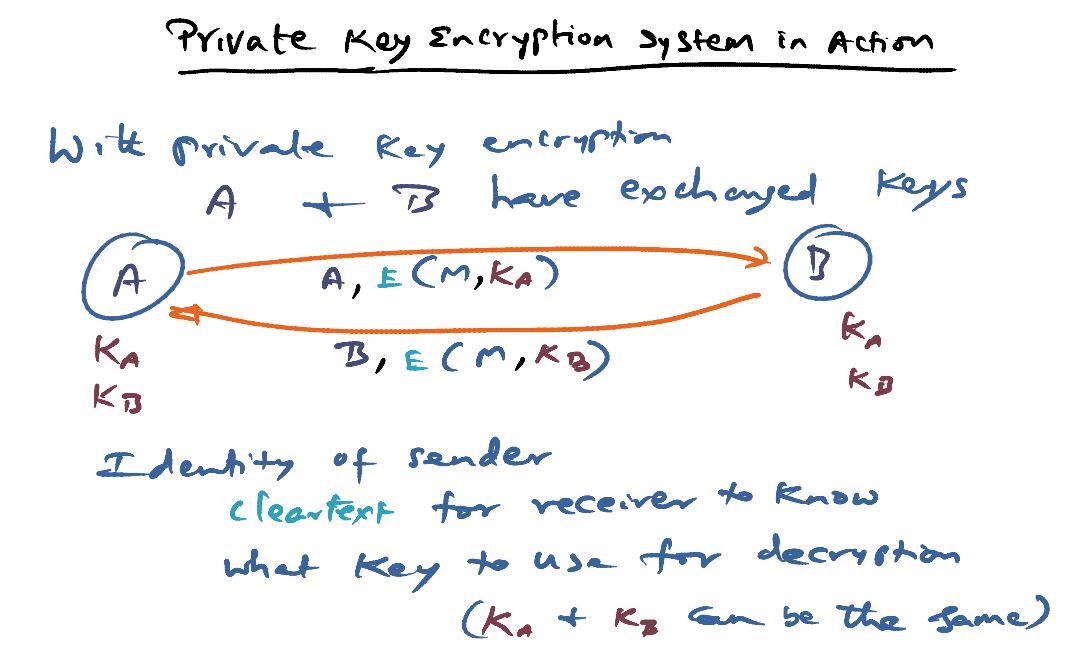 Private Key Encryption System in Action
With private key encryption
A + B have exchanged keys
A
B
A, E (M, KA)
B, E (M, KB)
KA
KB
KA
KB
Identity of sender
cleartext for receiver to know
what key to use for decryption
(KA + KB can be the same)